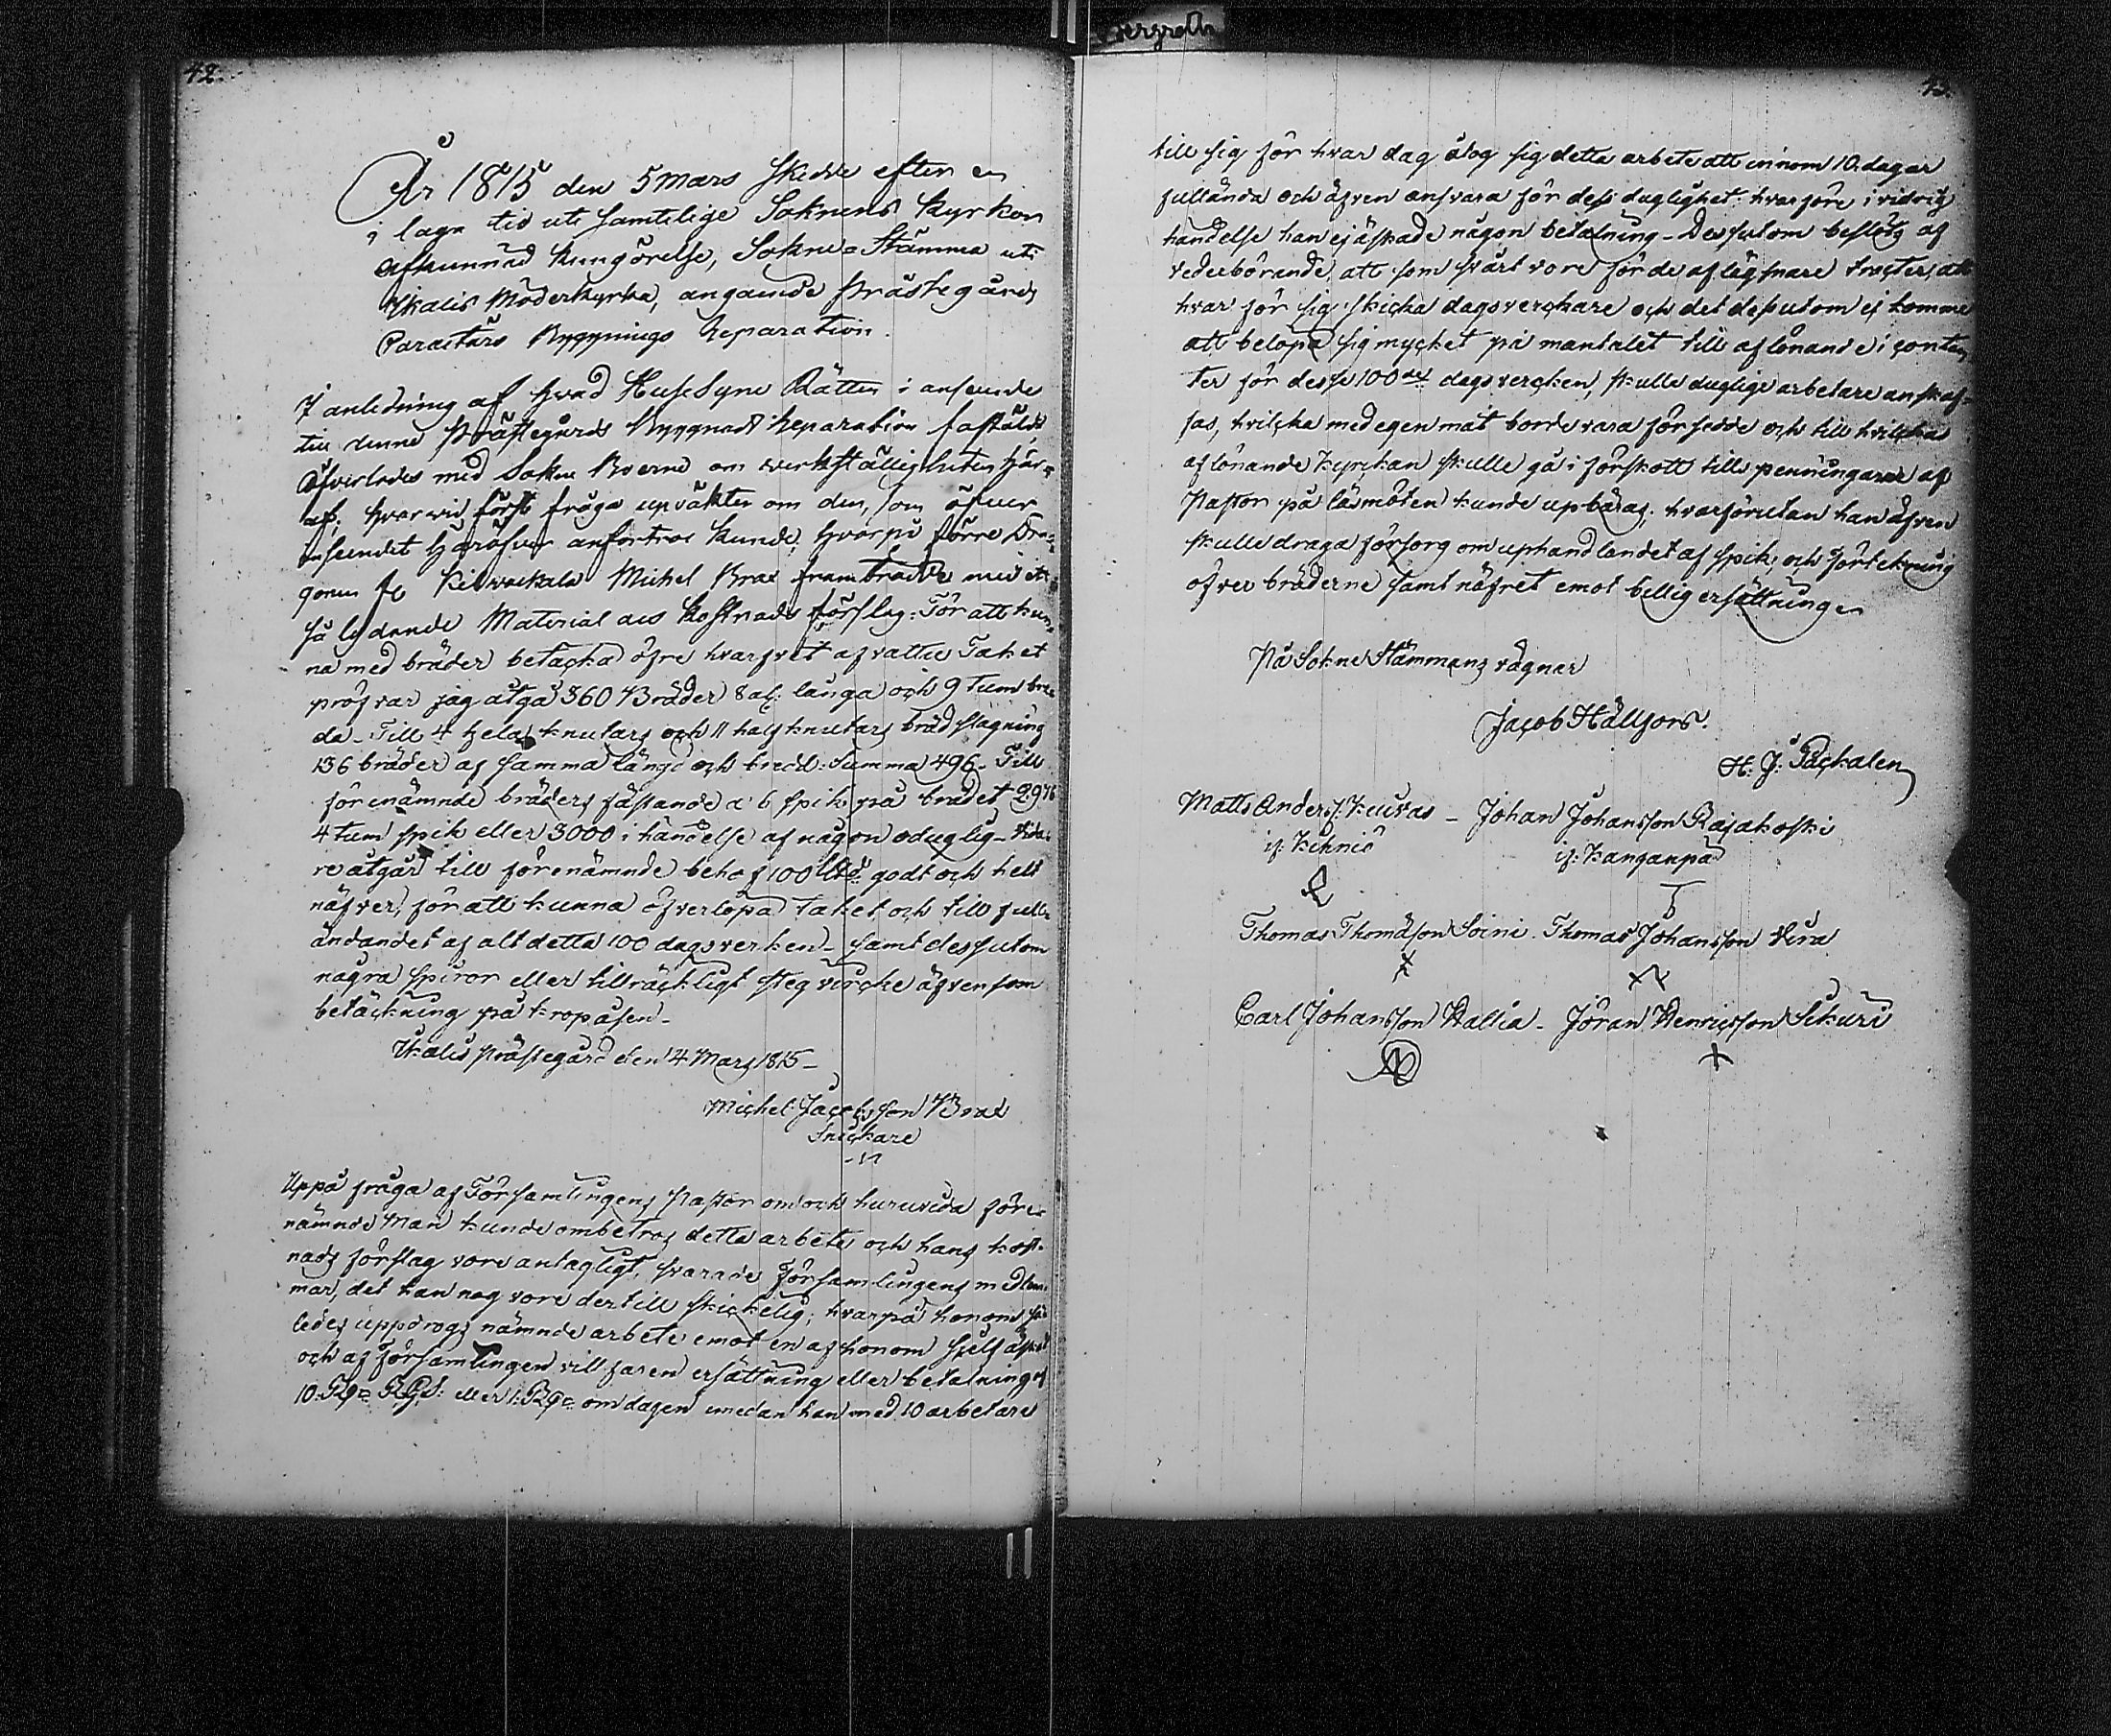 Bergroth
42.
År 1815 den 5 Mars skedde efter en
i laga tid uti samtelige Soknens Kyrkor
afkunnad kungörelse, Sokne=Stämma uti
Ikalis Moderkyrka, angående Prästegårds
Byggnings Reparation.
I anledning af hvad HuseSyne Rätten i anseende
till denne Prästegårds Byggnads Reparation faståldt
öfverlades med Sokne Boerne om verkställigheten här=
af; hvarvid först fråga upväktes om den, som öfver
inseendet häröfver anförtros kunde; hvarpå förre Dra=
gonen Michel Brax framträdde med ett
så lydande Material och Kostnads förslag: För att kun=
na med bräder betäcka öfre hvarfvet af vattu Taket
pröfvar jag åtgå 360 Bräder 8 al. långa och 9 tum bre=
da. Till 4 hela knutars och 11 half knutars brädslagning
136 bräder af samma längd och bredd: Summa 496. Till
förenämnde bräders fästande a 6 spik på brädet 2976
4 tum spik eller 3000 i händelse af någon oduglig. Vida=
re åtgår till förenämnde behof 100 godt och helt
näfver, för att kunna öfverlöpa taket och till full=
ändandet af alt detta 100 dagsverken. Samt dessutom
några spiror eller tillräckligt steg vircke äfvensom
betäckning på kropåsen.
Ikalis Prästegård den 4 Mars 1815.
Michel Jacobsson Brax
Snickare
Uppå fråga af Församlingens Pastor om och huruvida före=
nämnde Man kunde ombetros detta arbete och hans kost=
nads förslag vore antagligt, svarade Församlingens medlem=
mar, det han nog vore dertill skickelig; hvarpå honom så=
ledes uppdrogs nämnde arbete emot en af honom sjelf äskad
och af Församlingen villfaren ersättning eller betalning af
10. R: eller 1. R: om dagen emedan han med 10 arbetare
43.
till sig för hvar dag åtog sig detta arbete att innom 10. dagar
fullända och äfven ansvara för dess duglighet: hvarföre i vidrig
händelse han ej äskade någon betalning. Dessutom beslöts af
vederbörande, att som svårt vore för de aflägsnare tracter, att
hvar för sig skicka dagsverckare och det dessutom ej komme
att belöpa sig mycket på mantalet till aflönande i contan=
ter för desse 100de dagsvercken, skulle duglige arbetare anskaf=
fas, hvilcka med egen mat borde vara försedde och till hvilckas
aflönande Kyrckan skulle gå i förskott tills penningarne af
Pastor på läsmöten kunde upbäras; hvarförutan han äfven
skulle draga försorg om uphandlandet af spik, och förtekning
öfver bräderne samt näfret emot billig ersättning.
På SokneStämmans vägnar
Jacob Hällfors.
H: J: Packalen
Matts Anders: Kuivas – Johan Johansson Rajakoski
if: Kihniö if: Kanganpä
Thomas Thomasson Soini. Thomas Johansson
Carl Johansson Wallia. Jöran Henricsson Sikuri